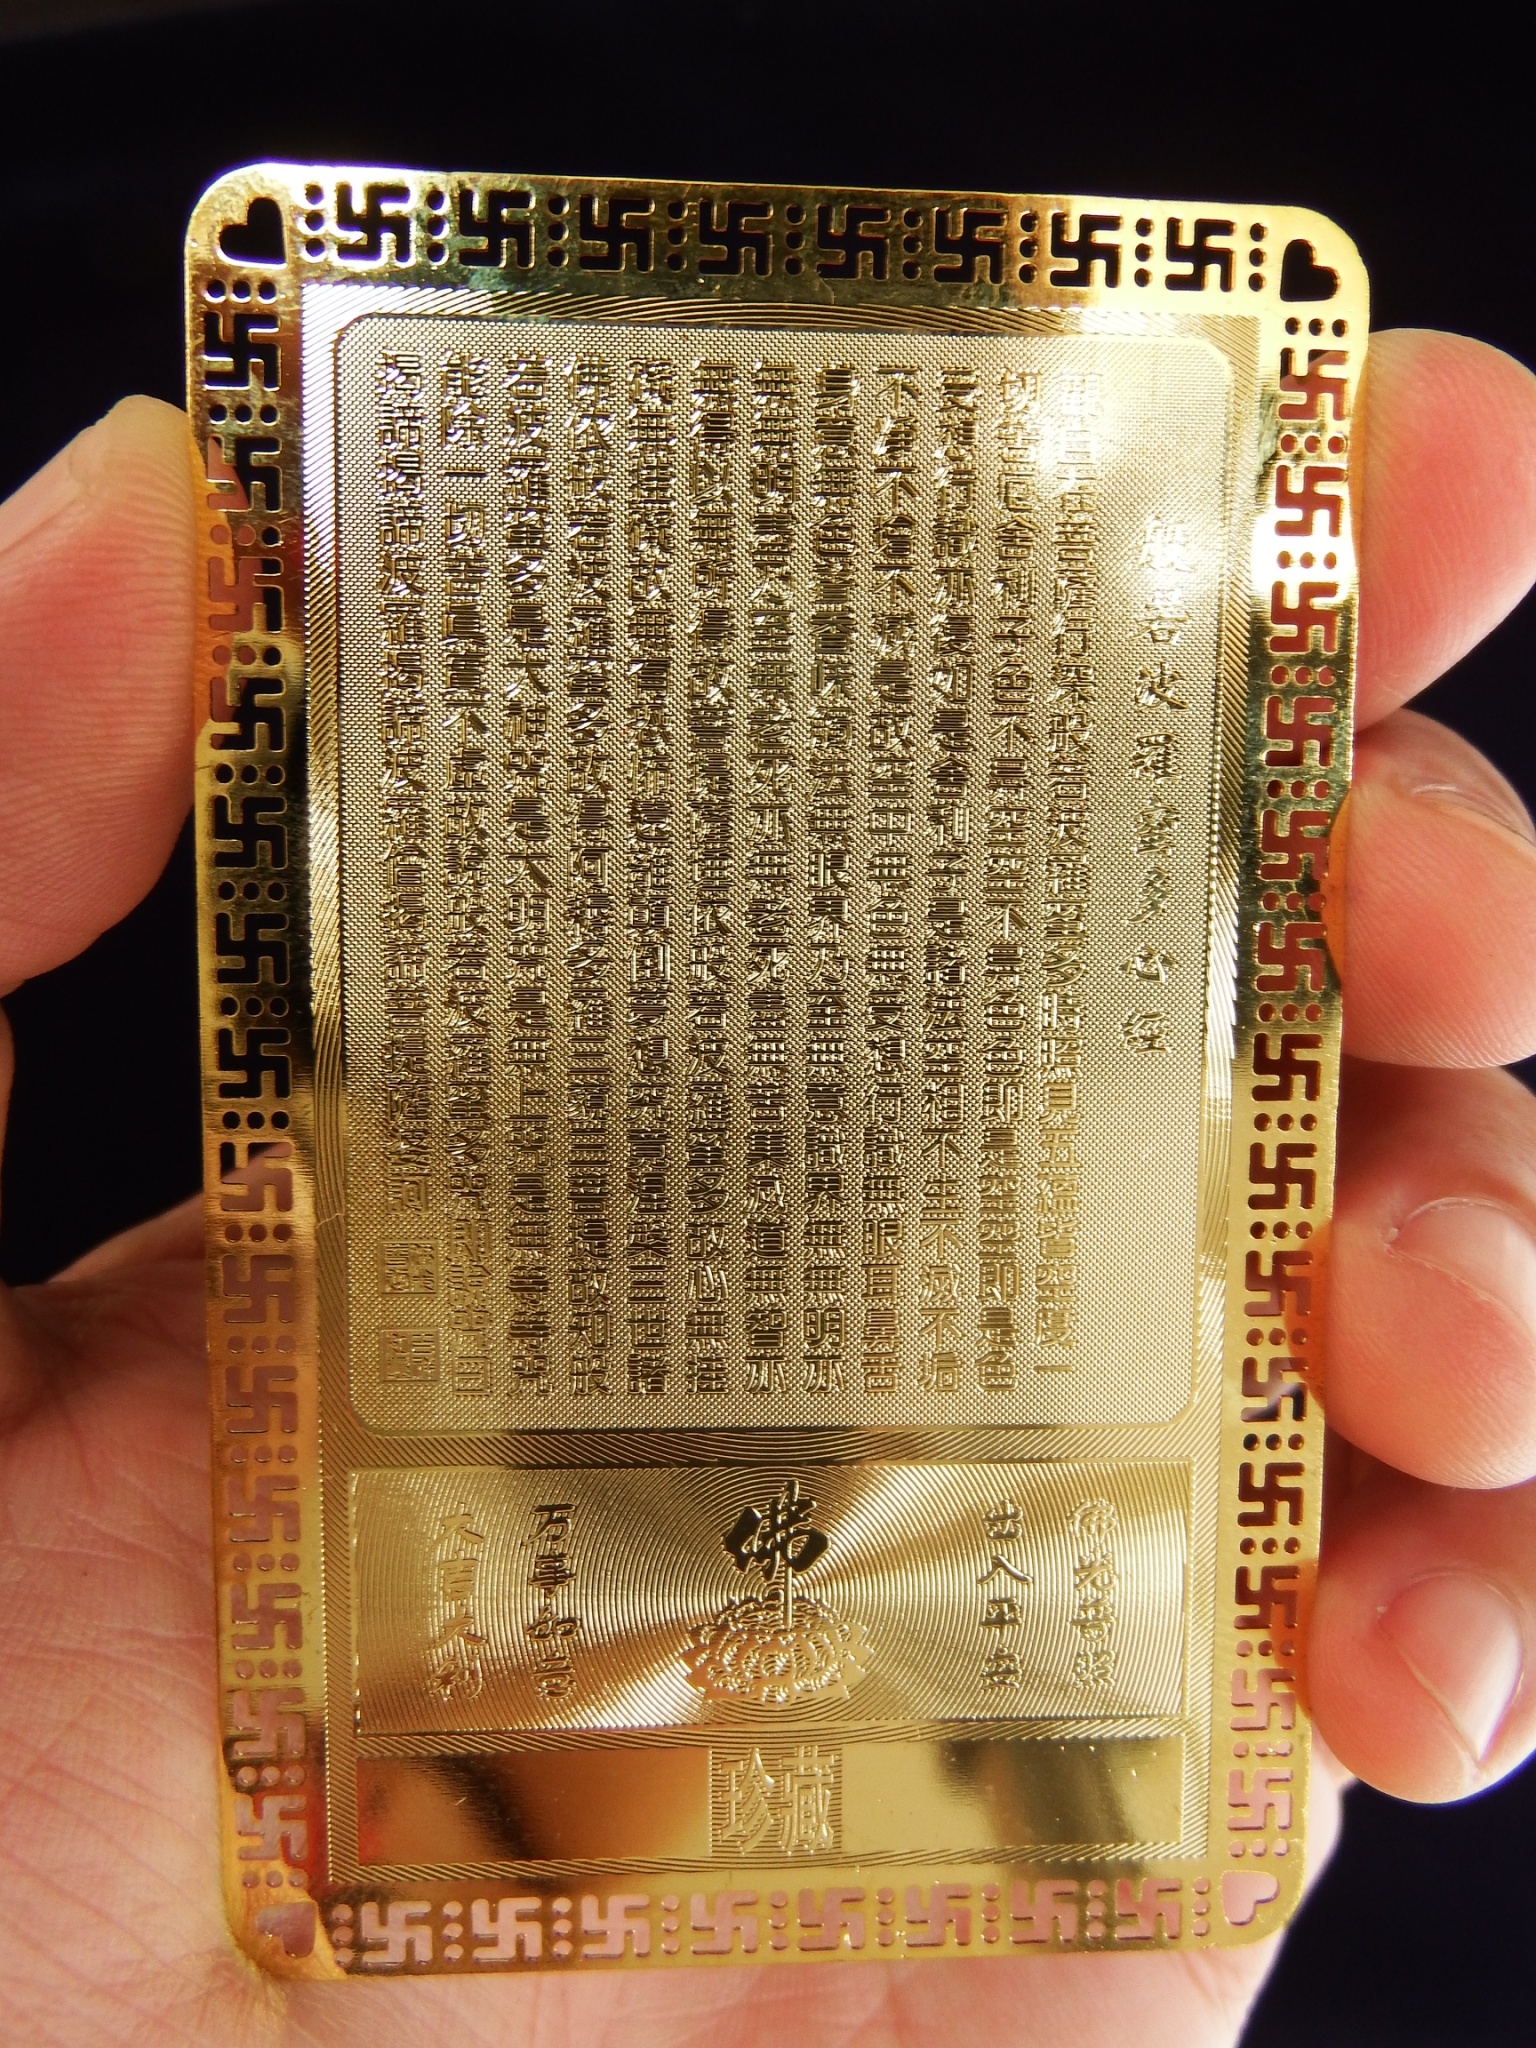 般若波羅蜜多心經
觀自在菩薩行深般若波羅蜜多時照見五蘊皆空度一
切苦厄舍利子色不異空空不異色色即是空空即是色
受想行識亦復如是舍利子是諸法空相不生不滅不垢
不淨不增不減是故空中無色無受想行識無眼耳鼻舌
身意無色聲香味觸法無眼界乃至無意識界無無明亦
無無明盡乃至無老死亦無老死盡無苦集滅道無智亦
無得以無所得故菩提薩埵依般若波羅蜜多故心無罣
礙無罣礙故無有恐怖遠離顛倒夢想究竟涅槃三世諸
佛依般若波羅蜜多故得阿耨多羅三藐三菩提故知般
若波羅蜜多是大神咒是大明咒是無上咒是無等等咒
能除一切苦真實不虛故說般若波羅蜜多咒即說咒曰
揭諦揭諦波羅揭諦波羅僧揭諦菩提薩婆訶
佛光普照
出入平安
佛
万事如意
大吉大利
珍藏